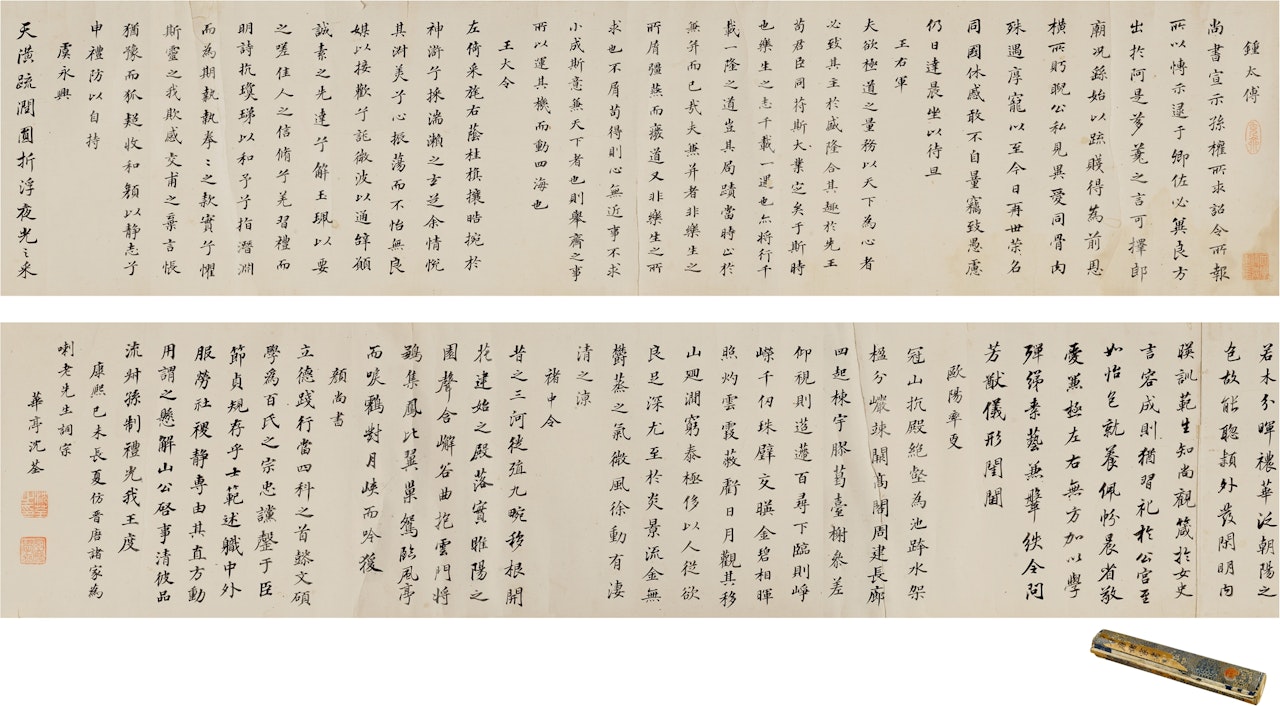 鍾太傅
尚書宣示孫權所求詔令所報
所以博示逮于卿佐必冀良方
出於阿是芻蕘之言可擇郎
廟況繇始以疏賤得為前恩
橫所眄睨公私見異愛同骨肉
殊遇厚寵以至今日再世榮名
同國休慼敢不自量竊致愚慮
仍日達晨坐以待旦
王右軍
夫欲極道之量務以天下為心者
必致其主於盛隆合其趣於先王
苟君臣同符斯大業定矣于斯時
也樂生之志千載一遇也亦將行千
載一隆之道豈其局蹟當時止於
兼并而已哉夫兼并者非樂生之
所屑彊燕而癈道又非樂生之所
求也不屑苟得則心無近事不求
小成斯意兼天下者也則舉齊之事
所以運其機而動四海也
王大令
左倚采旄右蔭桂旗攘皓捥於
神滸兮採湍瀨之玄芝余情悅
其淑美兮心振蕩而不怡無良
媒以接歡兮託微波以通辭願
誠素之先達兮解玉珮以要
之嗟佳人之信脩兮羌習禮而
明詩抗瓊珶以和予兮指潛淵
而為期執執拳々之款實兮懼
斯靈之我欺感交甫之棄言悵
猶豫而狐疑收和顏以静志兮
申禮防以自持
虞永興
天潢疏潤圓折浮夜光之采
若木分暉穠華泛朝陽之
色故能聰穎外發閑明內
暎訓範生知尚觀箴於女史
言容成則猶習祀於公宮至
如怡色就養佩帉晨省敬
愛兼極左右無方加以學
殫綈素藝兼鞶紩令問
芳猷儀形閨閫
歐陽率更
冠山抗殿絕壑為池跨水架
楹分巖竦闕高閣周建長廊
四起棟宇膠葛臺榭參差
仰視則迢遰百尋下臨則崢
嶸千仞珠璧交暎金碧相暉
照灼雲霞蔽虧日月觀其移
山迴澗窮泰極侈以人從欲
良足深尤至於炎景流金無
鬱蒸之氣微風徐動有淒
清之涼
褚中令
昔之三河徙殖九畹移根開
花建始之殿落實睢陽之
園聲含嶰谷曲抱雲門將
鶵集鳳比翼巢鴛臨風亭
而唳鶴對月峽而吟猨
顏尚書
立德踐行當四科之首懿文碩
學為百氏之宗忠讜罄于臣
節貞規存乎士範述職中外
服勞社稷静專由其直方動
用謂之懸解山公啓事清彼品
流叔孫制禮光我王度
康熙己未長夏仿晋唐諸家為
喇老先生詞宗
華亭沈荃